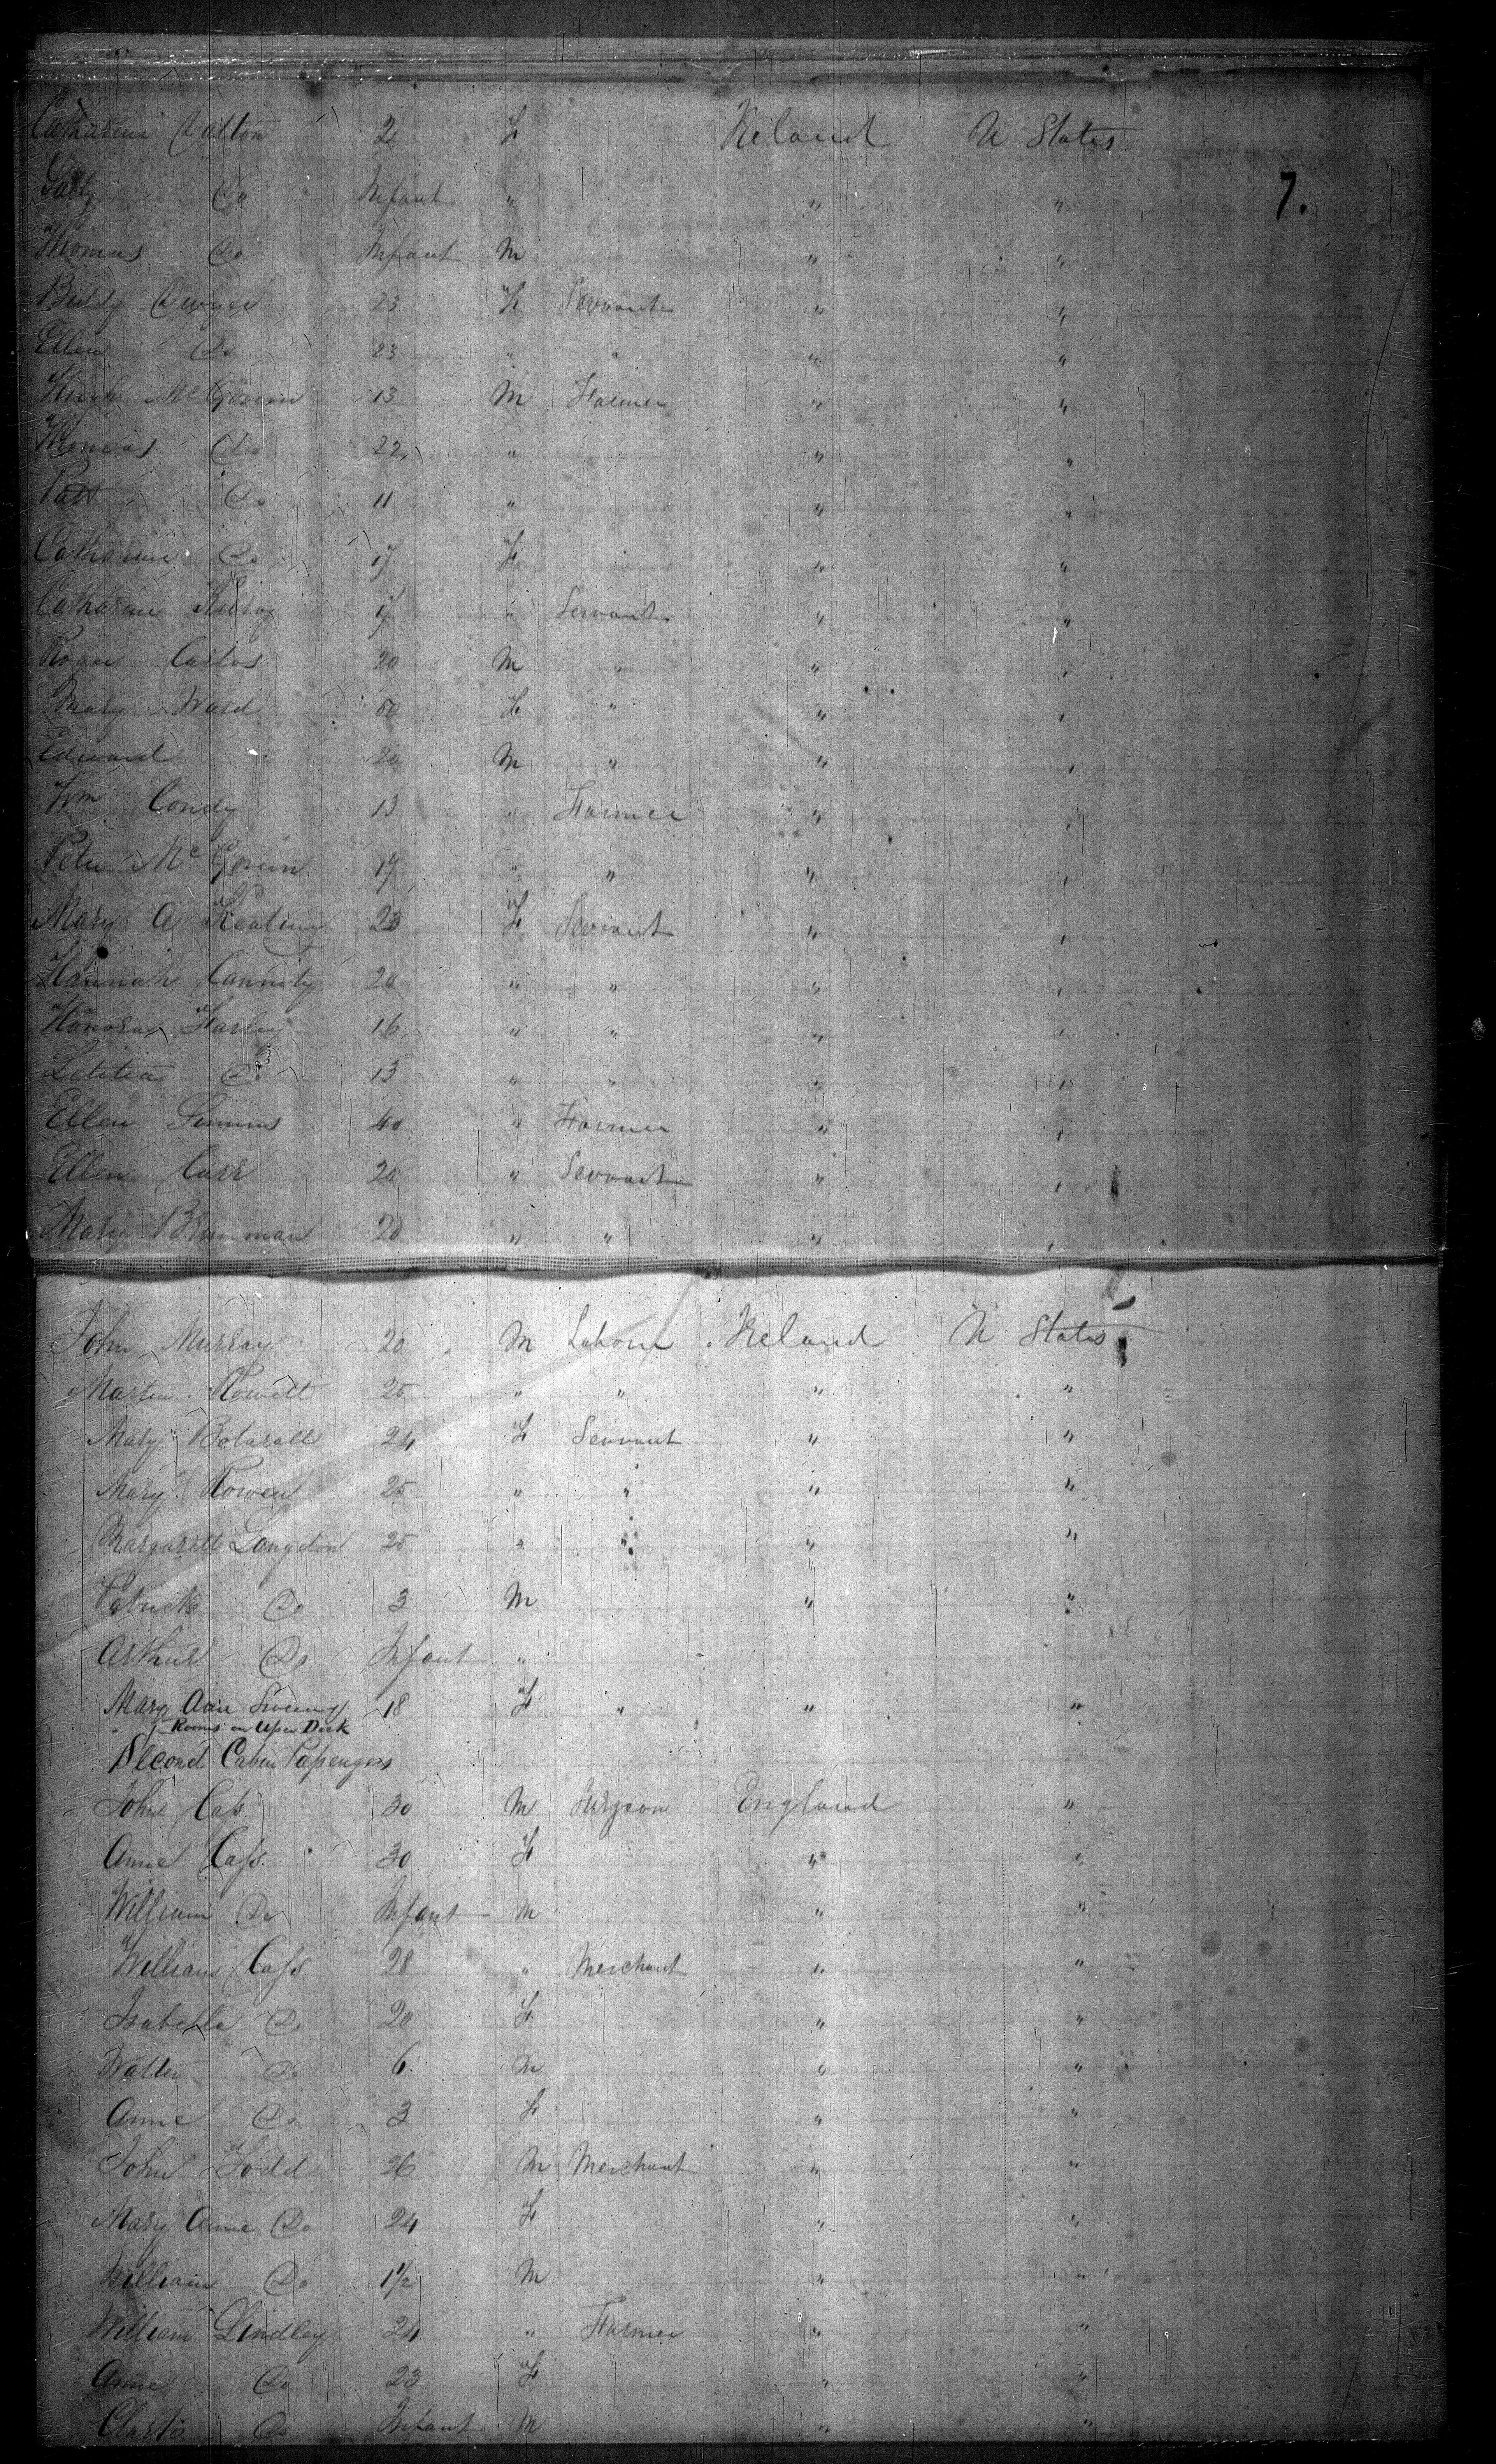 Catharine Dalton 2 F Ireland U States
7.
Sally Do Infant " " "
Thomas Do Infant M " "
Biddy Dwyer 23 F Servant " "
Ellen Do 23 " " " "
Hugh McGovern 13 M Farmer " "
Thomas Do 22 " " "
Patt Do 11 " " "
Catharine Do 17 F " "
Catharine 17 " Servant " "
Roger Carlos 20 M " " "
Mary Ward 50 F " " "
Edward 20 M " " "
Wm Condy 13 " Farmer " "
Peter McGovern 19 " " " "
Mary A Keating 23 F Servant " "
Hannah Cannity 20 " " " "
Honora Farley 16 " " " "
Letitia Do 13 " " " "
Ellen Simmins 40 " Farmer " "
Ellen Carr 20 " Servant " "
Mary Brannman 20 " " " "
John Murray 20 M Labour Ireland U States
Martin 25 " " " "
Mary 24 F Servant " "
Mary Rowen 25 " " " "
Margarett Langdon 25 " " " "
Patrick Do 3 M " "
Arthur Do Infant "
Mary Ann Sweeny 18 F " " "
Rooms on Uper Deck
Second Cabin Passengers
John Cass 30 M Surgeon England "
Anne Cass 30 F " "
William Do Infant M " "
William Cass 28 " Merchant " "
Isabella Do 20 F " "
Walter Do 6 M " "
Anne Do 3 F " "
John Todd 26 M Merchant " "
Mary Anne Do 24 F " "
William Do 1½ M " "
William Lindley 24 " Farmer " "
Anne Do 23 F " "
Clark Do Infant M " "